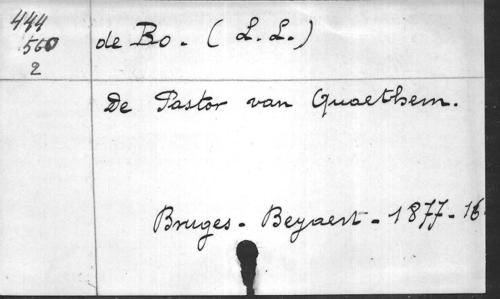 444
560
2
de Bo. (L. L.)
De Pastor van Quaethem.
Bruges - Beyaert - 1877 - 16